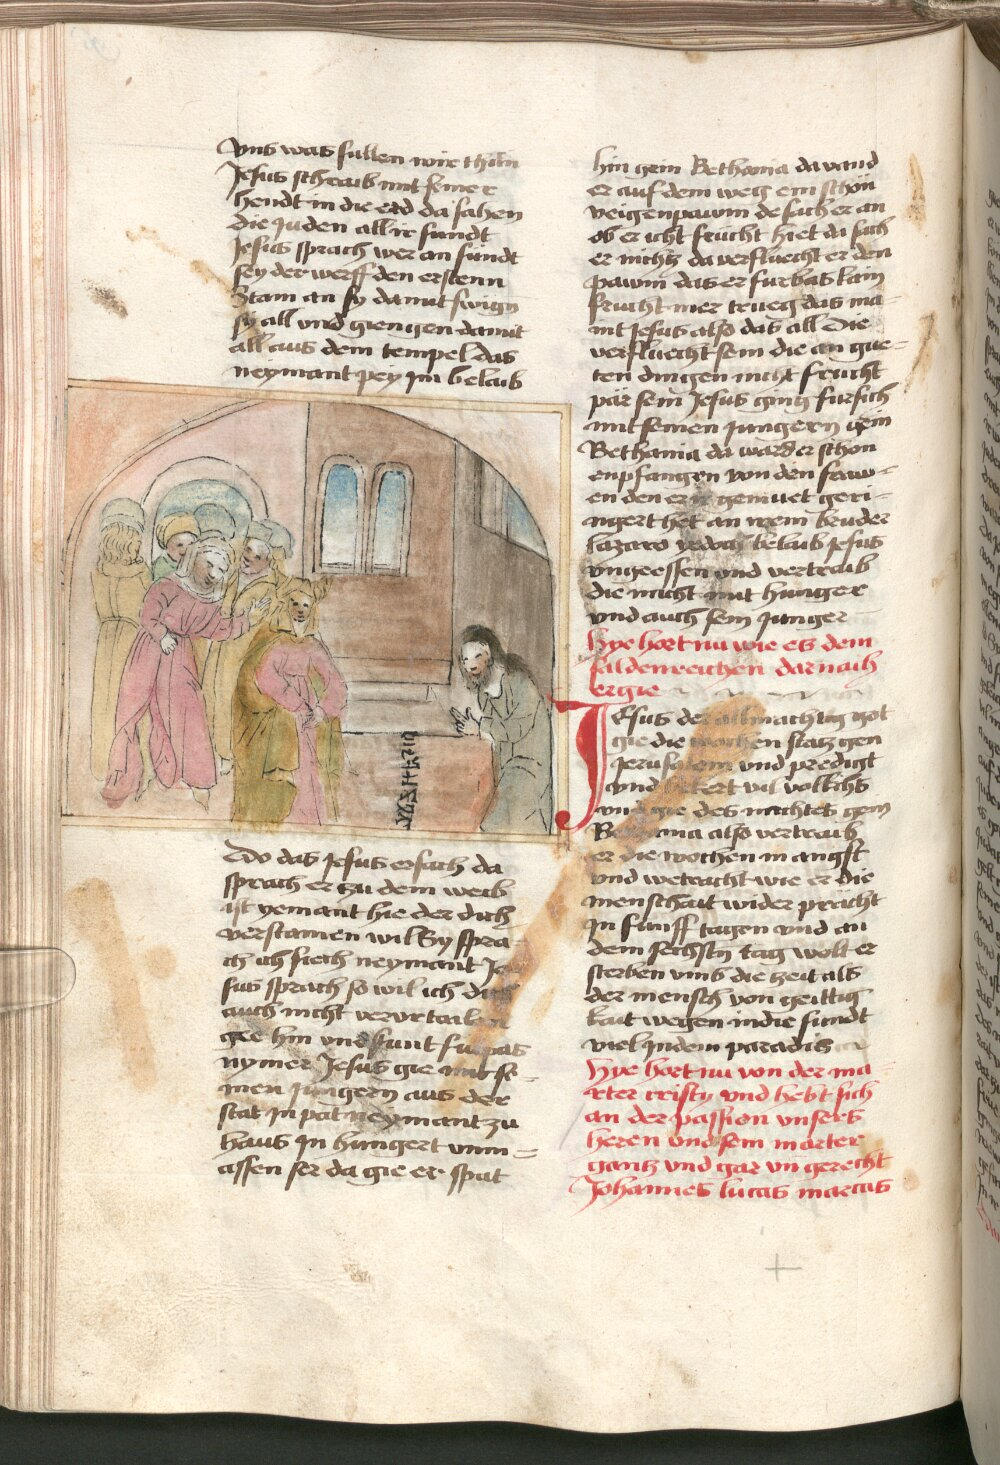 vns was sullen wir thun
Jesus schraib mit seiner
hendt in die erd da sahen
die Juden all ir sundt
Jesus sprach wer an sundt
sey der werff den ersten
Stain an sy damit swign
sy all vnd giengen damit
all aus dem tempel das
neymant pey im belaib
Do das Jesus ersach da
sprach er zu dem weib
ist yemant hie der dich
verstainen wil Sy spra
ch ich siech neymant Je
sus sprach so wil ich dich
auch nicht vervrtailen
gee hin vnd sunt furpas
nymer Jesus gie mit se-
inen Jungern aus der
stat In pat neymant zu
haus In hungert vnm=
assen ser da gie er spat
hin gein Bethania da vand
er auf dem weg ein schön
veigenpawm de sach er an
ob er icht frücht hiet da sach
er nichtz da verfluecht er den
pawm das er furbas kain
frucht mer trueg das ma-
int Jesus also das all die
verfluecht sein die an gue-
ten dingen nicht frucht
pär sein Jesus ging fursich
mit seinen Jungern gein
Bethania da ward er schon
enpfangen von den fraw-
en den er ir gemuet geri-
ngert het an irem bruder
lazaro yedoch belaib Jesus
vngeessen vnd vertraib
die nacht mit hunger
vnd auch sein Junger
Hye hort nu wie es dem
saldenreichen darnach
ergie
Jesus der allmachtig got
gie die wochen statz gen
Jerusalem vnd predigt
vnd bekert vil volkchs
vnd gie des nachtes gein
Bethania also vertraib
er die wochen in angst
vnd wetracht wie er die
menschait wider prächt
In funff tagen vnd an
dem sechstn tag wolt er
sterben vmb die zeit als
der mensch von geittig
kait wegen in die sundt
viel In dem paradis
Hye hort nu von der ma-
rter cristy vnd hebt sich
an der passion vnsers
heren vnd sein marter
gantz vnd gar vn gerecht
Johannes lucas marcus